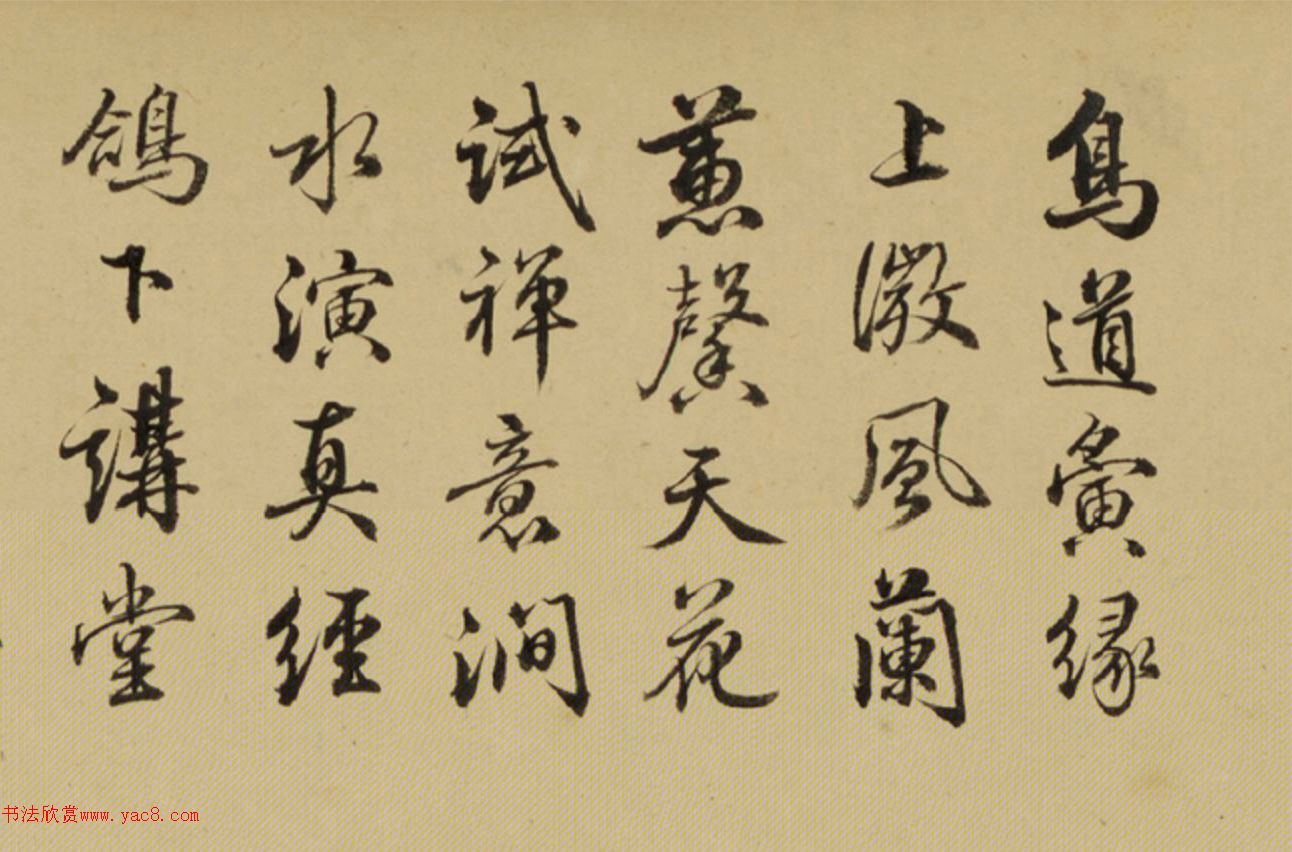 鳥道夤緣
上微風蘭
蕙馨天花
試禪意澗
水演真經
鴿下講堂
书法欣赏www.yac8.com